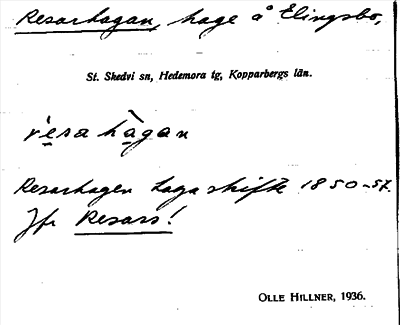 Resarhagan, hage å Elingsbo,
St. Skedvi sn, Hedemora tg, Kopparbergs län.
rèsahàgan
Resarhagen Laga skifte 1850-57.
Jfr Resars!
OLLE HILLNER, 1936.